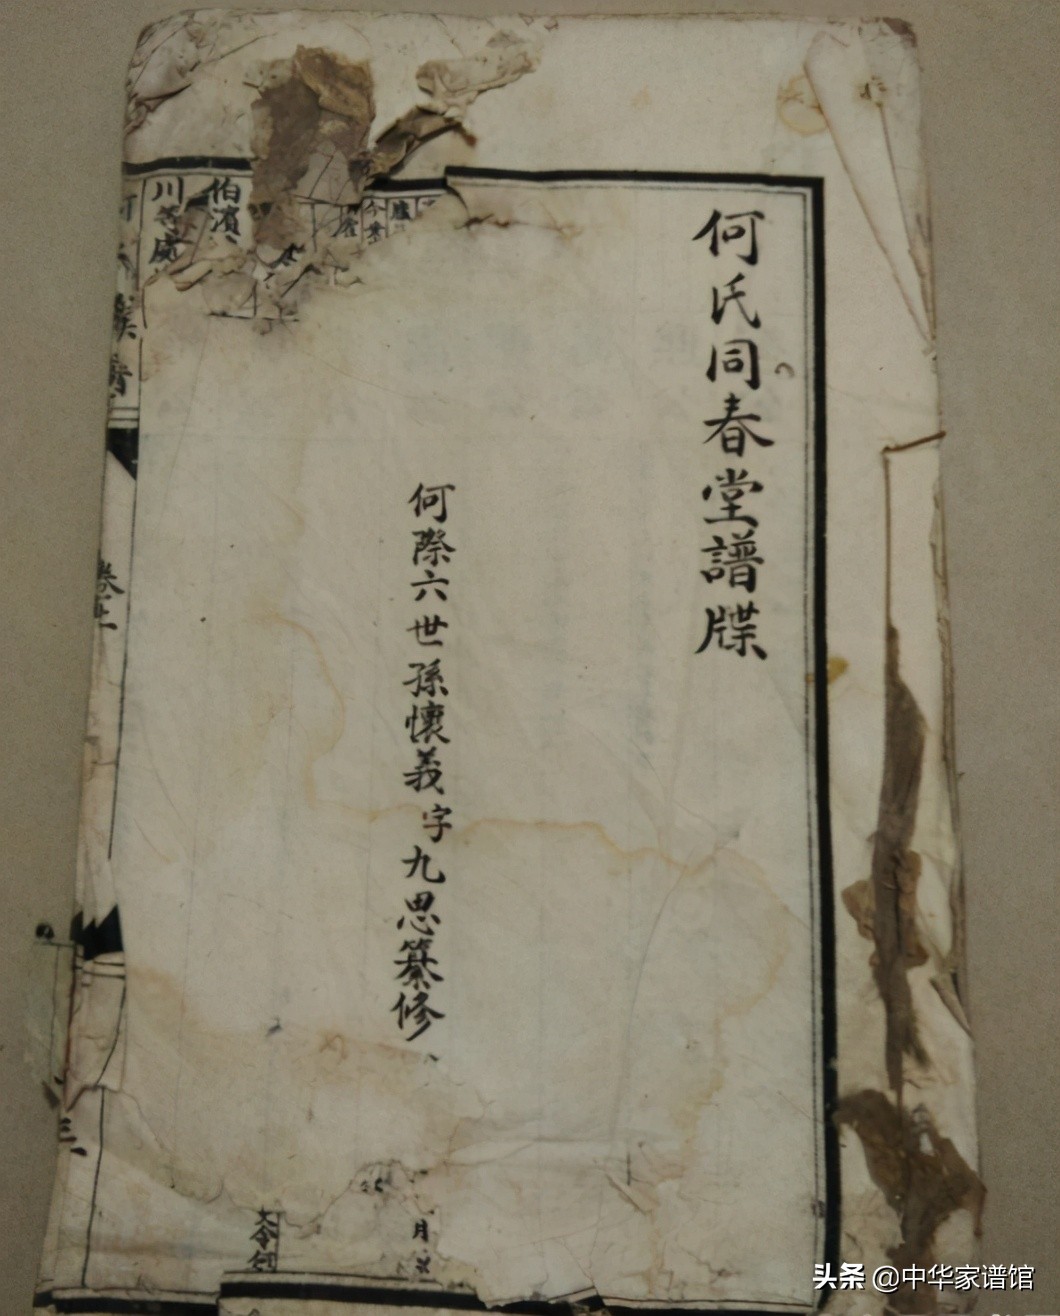 何氏同春堂譜牒
何際六世孫懷義字九思纂修
伯濱
川等處
族譜
卷
三
月
頭条 @中华家谱馆